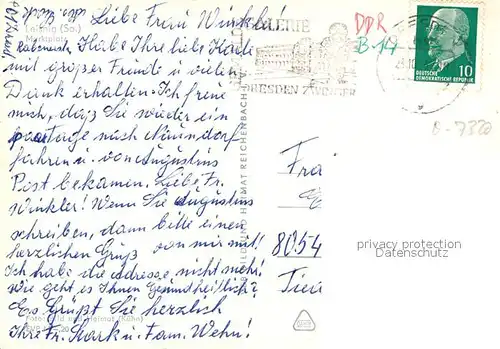 Leisnig (Sa.)
Marktplatz
Liebe Frau Winkler!
Habe Ihre liebe Karte
mit großer Freude u. vielen
Dank erhalten. Ich freue
mich, daß Sie wieder ein
paar Tage nach Naundorf
fahren u. von Augustus
Post bekamen. Liebe Fr.
Winkler! Wenn Sie Augustus
schreiben, dann bitte einen
herzlichen Gruß von mir mit!
Ich habe die Adresse nicht mehr!
Wie geht es Ihnen Gesundheitlich?
Es Grüßt Sie herzlich
Ihre Fr. Mark u. Fam. Wehn!
GALERIE
DRESDEN ZWINGER
DDR
B-14
DEUTSCHE
DEMOKRATISCHE REPUBLIK
10
BILD UND HEIMAT REICHENBACH
Foto: Bild und Heimat (Kühn)
8054
privacy protection
Datenschutz